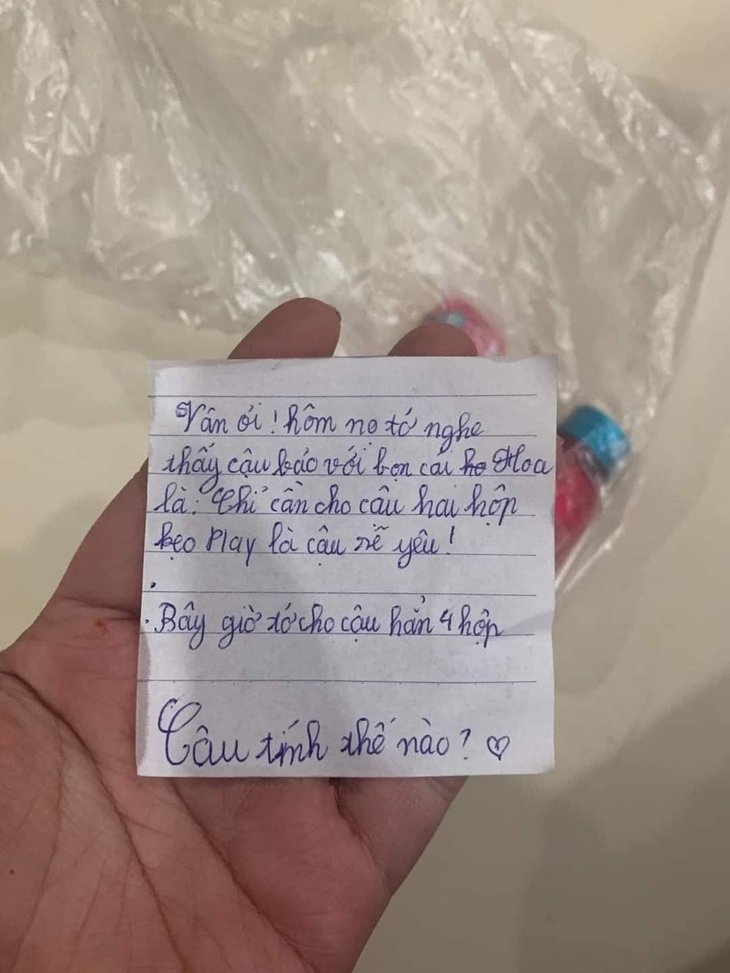 Vân ơi! hôm nọ tớ nghe
thấy cậu bảo với bọn cái Hoa
là: Chỉ cần cho câu hai hộp
kẹo Play là cậu sẽ yêu!
. Bây giờ tớ cho cậu hẳn 4 hộp
Câu tính thế nào? ♡